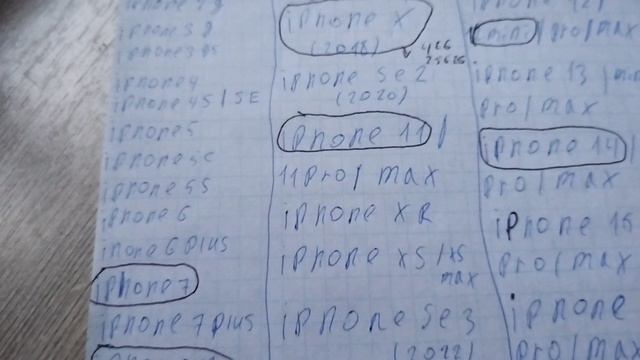 iphone 3g
iphone 3gs
iphone 4
iphone 4S/SE
iphone 5
iphone 5c
iphone 5S
iphone 6
iphone 6 plus
iphone 7
iphone 7 plus
iphone X
(2018)
iphone se 2
(2020)
iphone 11/
11pro/max
iphone XR
iphone XS/XS
max
iphone se3
(2022)
mini/pro/max
iphone 13/mini
pro/max
iphone 14/
pro/max
iphone 15
pro/max
iphone
pro/max